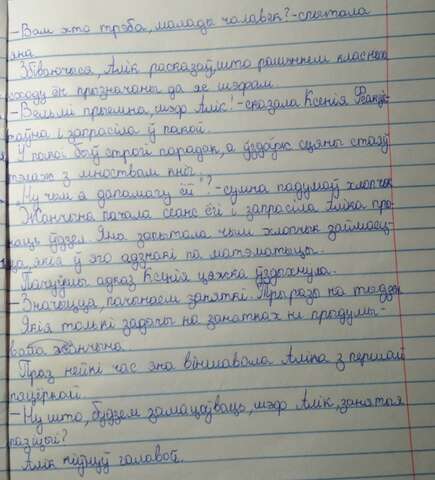 -Вам хто трэба, малады чалавек? - спытала
яна.
Збіваючыся, Алік расказаў, што рашэннем класнага
сходу ён прызначаны да яе шэфам.
-Вельмі прыемна, шэф Алік! - сказала Ксенія
каўна і запрасіла ў пакой.
У пакоі быў строгі парадак, а ўздоўж сцяны стаяў
з мноствам кніг.
"Ну чым я дапамагу ёй?" - сумна падумаў хлопчык
Жанчына пачала сеанс ёгі і запрасіла Аліка пры-
няць удзел. Яна запытала чым хлопчык займаец-
ца, якія ў яго адзнакі па матэматыцы.
Пачуўшы адказ Ксенія цяжка ўздыхнула.
-Значыцца, пачынаем заняткі. Тры разы на тыдзень
Якія толькі задачы на занятках ні прыдумы-
вала жанчына.
Праз нейкі час яна віншавала Аліка з першай
пяцёркай.
-Ну што, будзем замацоўваць, шэф Алік, занятыя
пазіцыі?
Алік кіўнуў галавой.